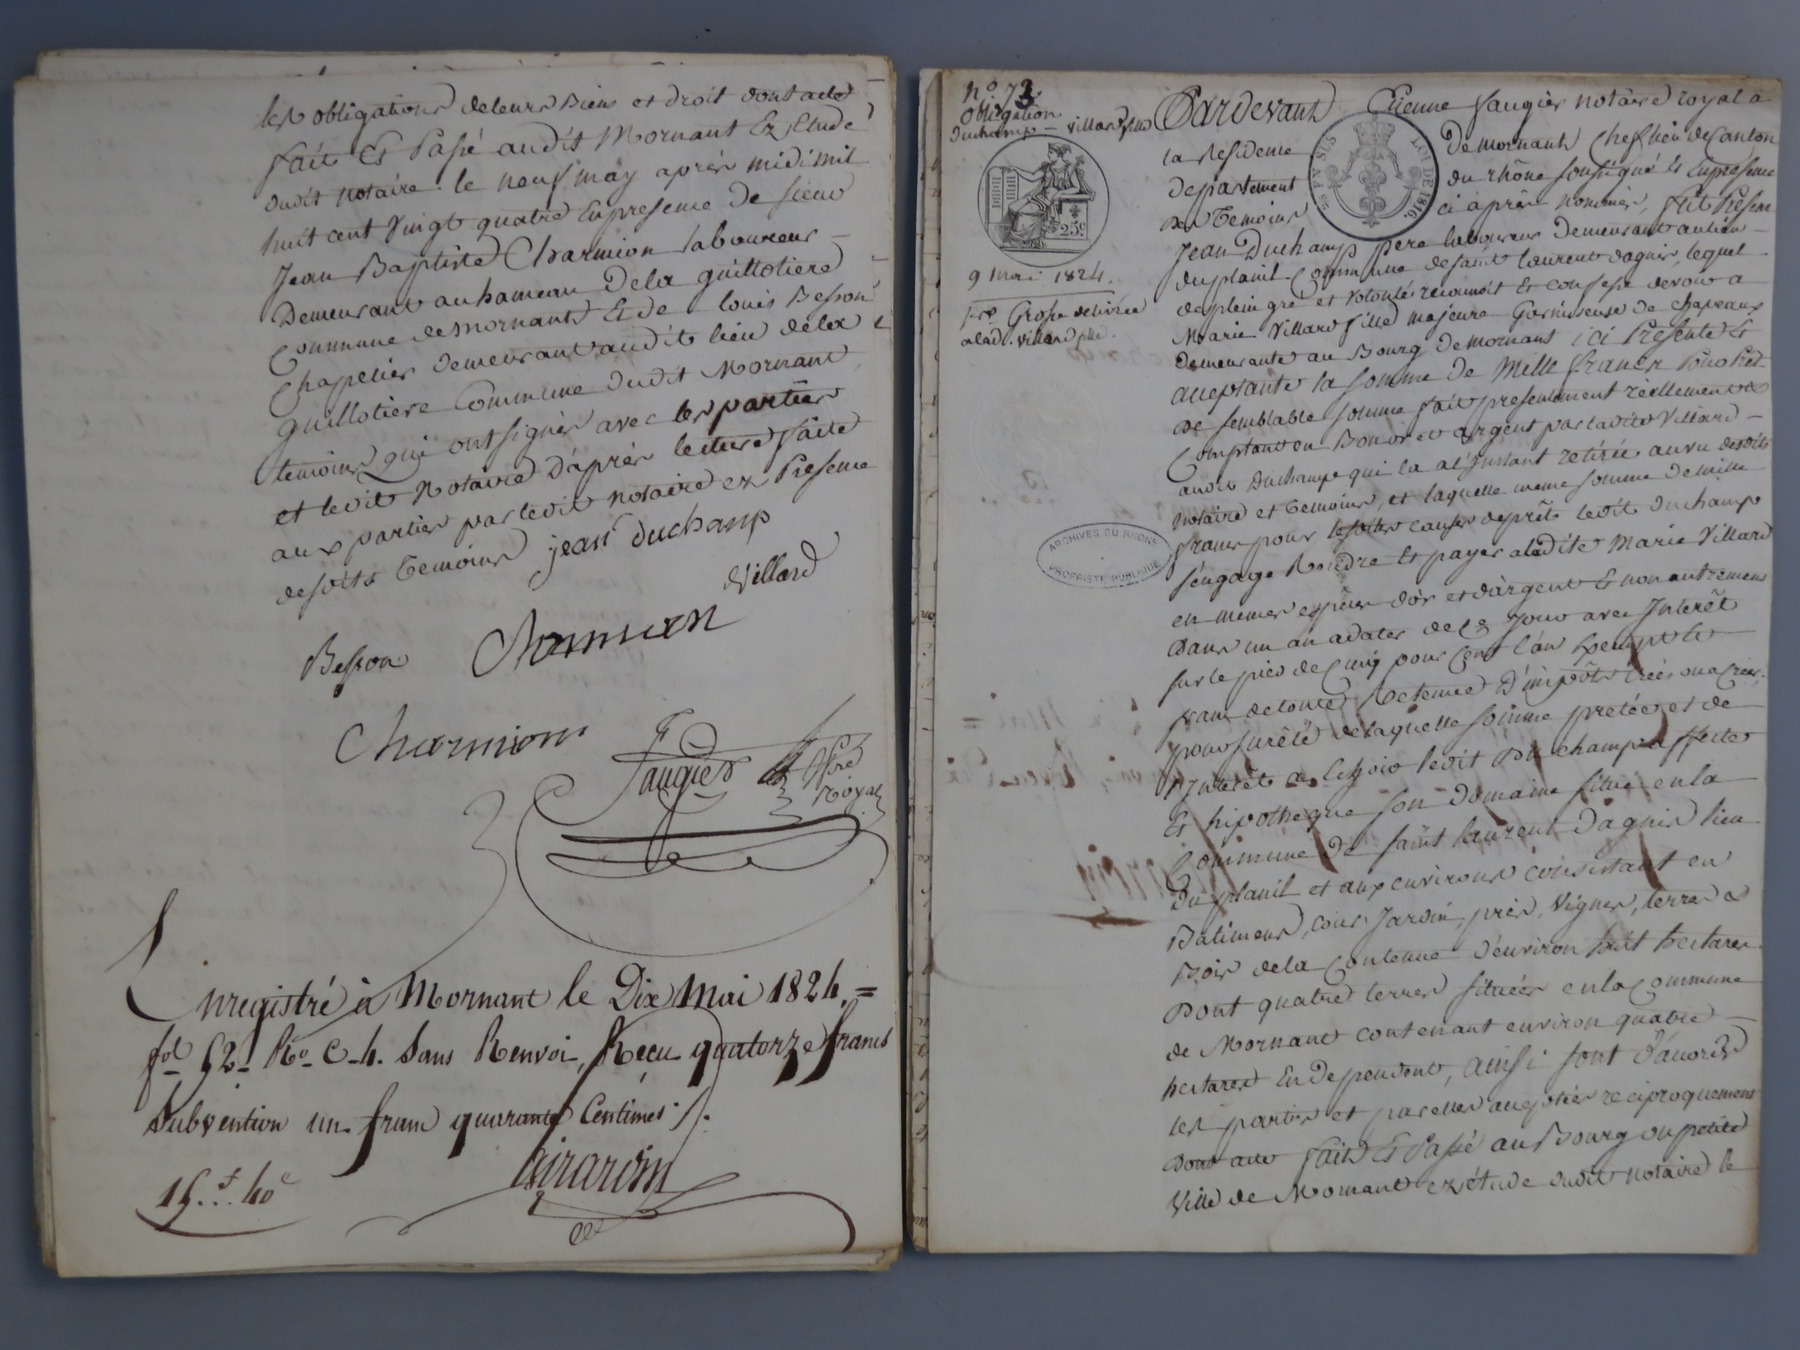 les obligations de leurs Biens et droit dont acte
fait Et Passé audit Mornant Ez Etude
dudit notaire le neuf may après midi mil
huit cent vingt quatre En presence de sieur
Jean Baptiste Charmion laboureur
Demeurant au hameau De la guillotiere
Commune de mornant Et de louis Besson
Chapelier demeurant audit lieu de la
guillotiere Commune dudit Mornant
temoins qui ont signés avec les parties
et ledit Notaire D'après lecture faite
aux parties par ledit notaire ez Presence
desdits Temoins jean duchamp
Villard
Besson Charmion
Charmion
Faugier Nre
Royal
Enregistré à Mornant le Dix Mai 1824. =
fol 52 Ro C. 4. Sans Renvoi, Reçu quatorze francs
Subvention un franc quarante Centimes ./.
15.f 40c
Girardin
No. 73
Obligation
Duchamp - Villard fille
25c
9 mai 1824.
1re Grosse delivrée
a lad. villard fille.
Pardevant Etienne faugier notaire royal a
la Residence De mornant Chef lieu de Canton
Departement du rhône soussigné Et En presence
De Temoins ci après nommés, fut Present
LOI DE 1816
Jean Duchamp pere laboureur Demeurant au lieu
du planil Commune de saint laurent dagnis, lequel
de plein gré et volonté reconnoit Et confesse devoir a
Marie Villard fille majeure Garnisseuse de chapeaux
demeurante au Bourg de mornant ici Presente Et
acceptante la somme de Mille francs Pour Prêt
de semblable somme fait presentement réellement &
Comptant en Bon or et argent par ladite Villard
audit Duchamp qui la a l'Instant retirée au vu desdits
Notaire et Temoins, et laquelle meme somme de mille
francs pour lesdites causes de prêt ledit duchamp
ARCHIVES DU RHONE
PROPRIETE PUBLIQUE
s'engage Rendre Et payer a ladite Marie Villard
en memes espèces d'or et d'argent Et non autrement
Dans un an a dater de Ce Jour avec Interêt
sur le pied de Cinq pour Cent l'an Exempt Et
franc de toute Retenue D'impôts créés ou a Créer,
pour sureté de laquelle somme pretée et de
l'Interêt a Echoir ledit Du champ affecte
Et hipotheque son Domaine situé en la
Commune De saint laurent Dagnis lieu
Du planil et aux environs consistant en
Batimens, cour, Jardin, près, vignes, terres &
Bois de la Contenue d'environ huit hectares
Dont quatre terres situées en la Commune
de Mornant contenant environ quatre
hectares En Dependent, ainsi sont d'accords
les parties et par elles acceptées reciproquement
Dont acte fait Et Passé au Bourg ou petite
Ville de Mornant ez étude dudit notaire le